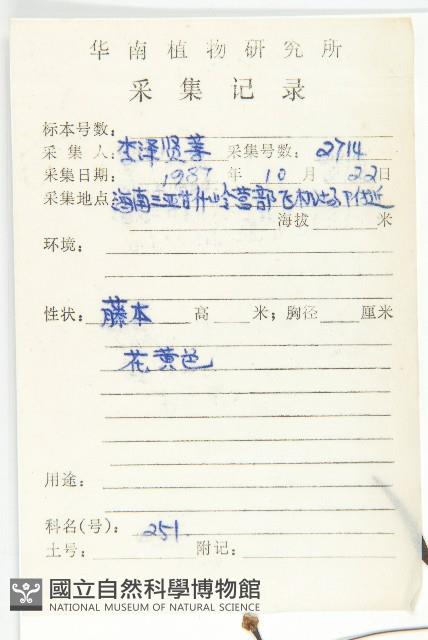 华南植物研究所
采集记录
标本号数：
采集人：李泽贤等 采集号数：2714
采集日期：1987年10月22日
采集地点：海南三亚甘什岭营部飞机场附近
海拔 米
环境：
性状：藤本 高 米；胸径 厘米
花黄色
用途：
科名(号)：251
土号： 附记：
國立自然科學博物館
NATIONAL MUSEUM OF NATURAL SCIENCE